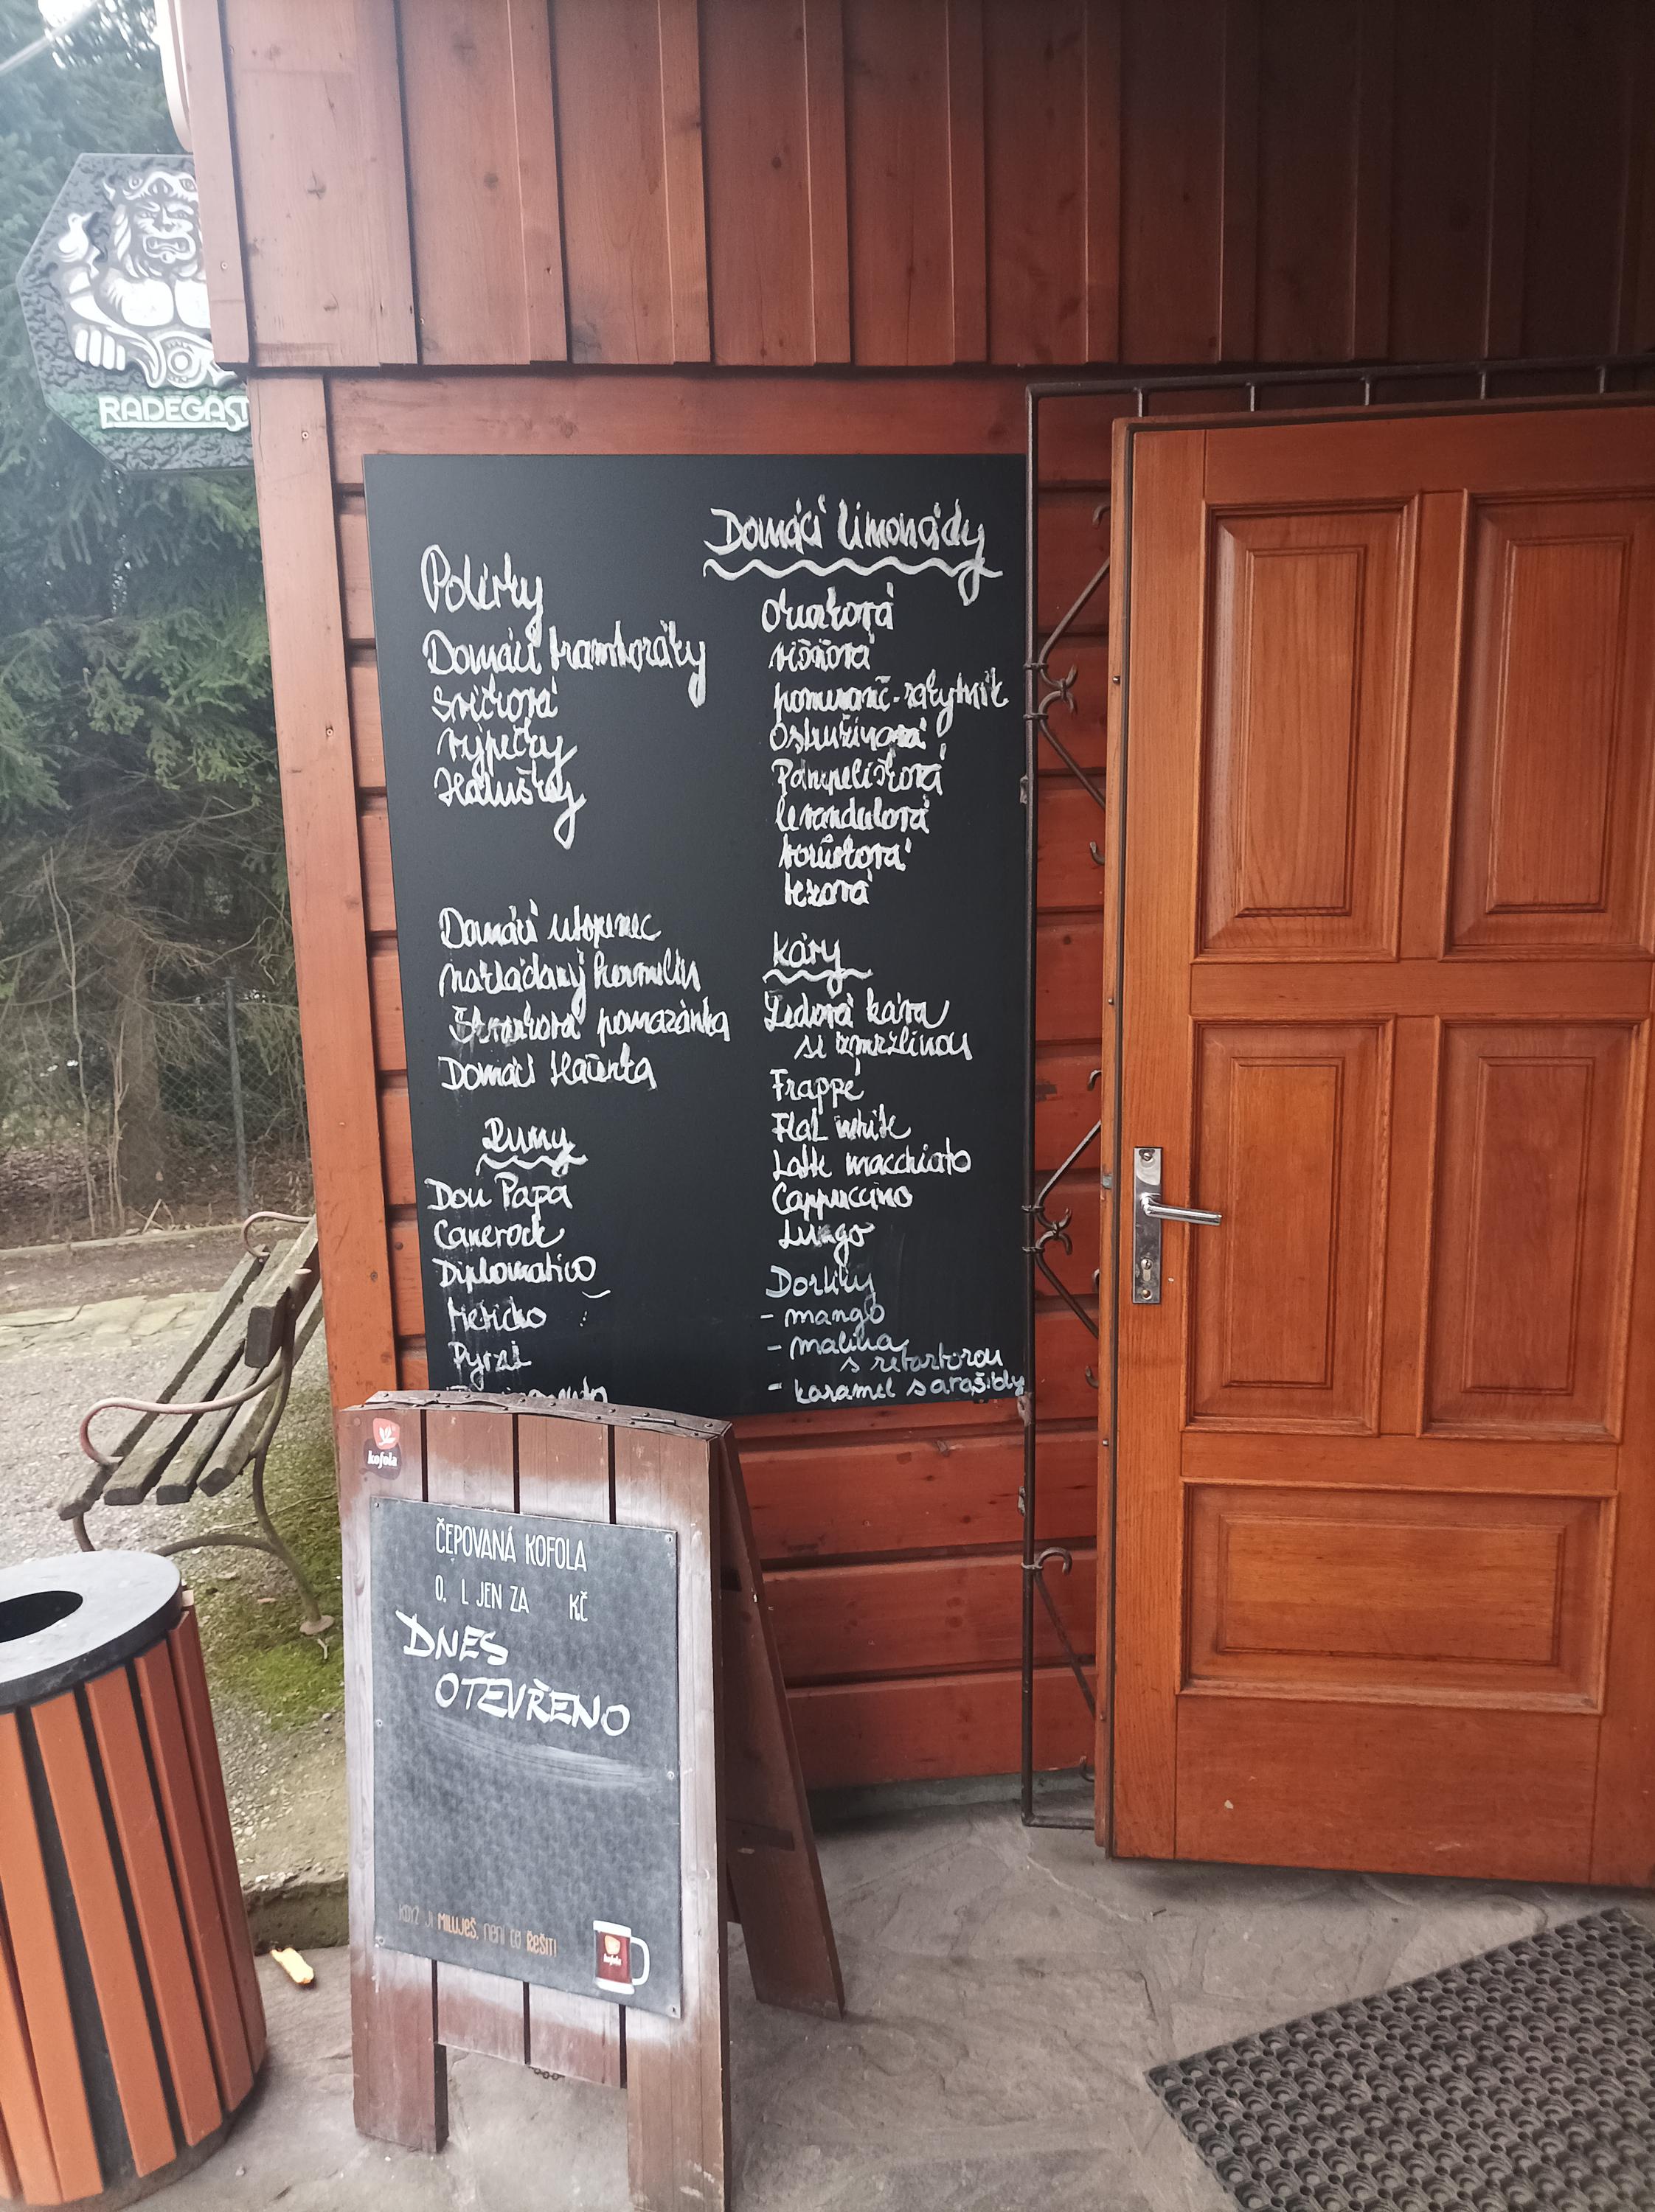 RADEGAST
Polévky
Domácí bramboráky
Svíčková
výpečky
Halušky
Domácí utopenec
nakládaný hermelín
Škvarková pomazánka
Domácí tlačenka
Rumy
Don Papa
Canerock
Diplomatico
Meticho
Pyrat
Domácí limonády
okurková
višňová
pomeranč-rakytník
Ostružinová
Pampelišková
levandulová
borůvková
bezová
kávy
Ledová káva
se zmrzlinou
Frappé
Flat white
Latte macchiato
Cappuccino
Lungo
Dortíky
- mango
- malina
s rebarborou
- karamel s arašídy
kofola
ČEPOVANÁ KOFOLA
0, L JEN ZA KČ
DNES
OTEVŘENO
KDYŽ JI MILUJEŠ, není co ŘEŠIT!
kofola